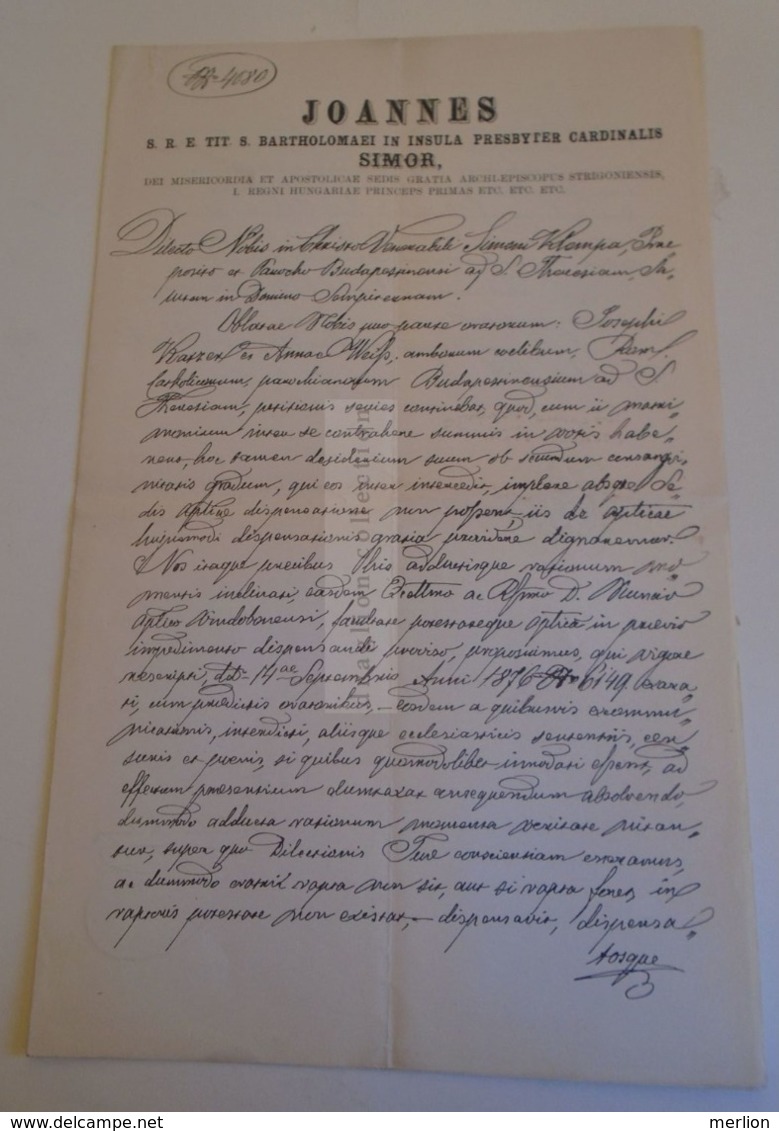 4080
JOANNES
S. R. E. TIT. S. BARTHOLOMAEI IN INSULA PRESBYTER CARDINALIS
SIMOR,
DEI MISERICORDIA ET APOSTOLICAE SEDIS GRATIA ARCHI-EPISCOPUS STRIGONIENSIS,
I. REGNI HUNGARIAE PRINCEPS PRIMAS ETC. ETC. ETC.
Dilecto Nobis in Christo Venerabili Simoni Klempa, Prae
posito et Parocho Budapestinensi ad S. Theresiam, Sa„
lutem in Domino Sempiternam.
Oblatae Nobis pro parte oratorum: Josephi
et Annae Weiß, amborum coelibum, Rom.
Catholicorum, parochianorum Budapestinensium ad S.
Theresiam, petitionis series continebat, quod, cum ii matri„
monium inter se contrahere summis in votis habe„
rent, hoc tamen desiderium suum ob secundum consangvi„
nitatis gradum, qui eos inter intercedit, implere absque Se„
dis Aplicae dispensatione non possent, iis de aplicae
hujusmodi dispensationis gratia providere dignaremur.
Nos itaque precibus his adductisque rationum mo„
mentis inclinati, easdem Excellmo ac Rssmo D. Nuncio
Aplico Vindobonensi, facultate potestateque aplica in praevio
impedimento dispensandi proviso, proposuimus, qui vigore
rescripti, ddto 14ae Septembris Anni 1876 No 6149 exara„
ti, cum praedictis oratoribus, — eosdem a quibusvis excommu„
nicationis, interdicti, aliisque ecclesiasticis sententiis, cen„
suris et poenis, si quibus quomodolibet innodati essent, ad
effectum praesentium dumtaxat consequendum absolvendo,
dummodo adducta rationum momenta veritate nitan„
tur, super quo Dilectionis Tuae conscientiam oneramus,
ac dummodo oratrix rapta non sit, aut si rapta foret, in
raptoris potestate non existat, — dispensavit, dispensa„
tosque
dragtion collection
merlion